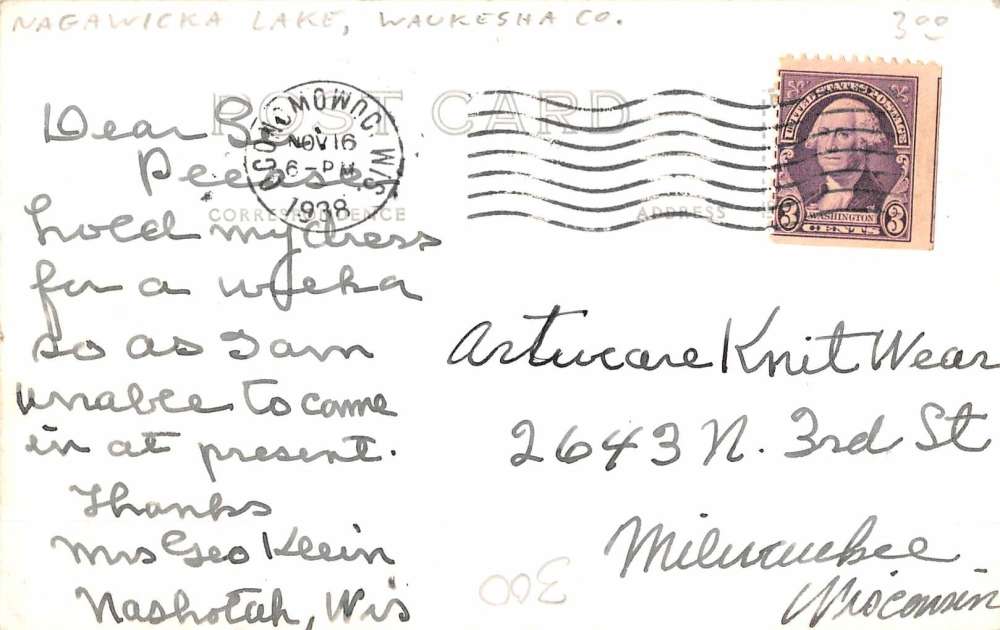 NAGAWICKA LAKE, WAUKESHA CO.
3.00
POST CARD
OCONOMOWOC WIS
NOV 16
6-PM
1938
UNITED STATES POSTAGE
3 WASHINGTON 3
CENTS
CORRESPONDENCE
ADDRESS
Dear
Please
hold my dress
for a week
so as I am
unable to come
in at present.
Thanks
Mrs Geo Klein
Nashotah, Wis
Knit Wear
2643 N. 3rd St
Milwaukee
Wisconsin
300